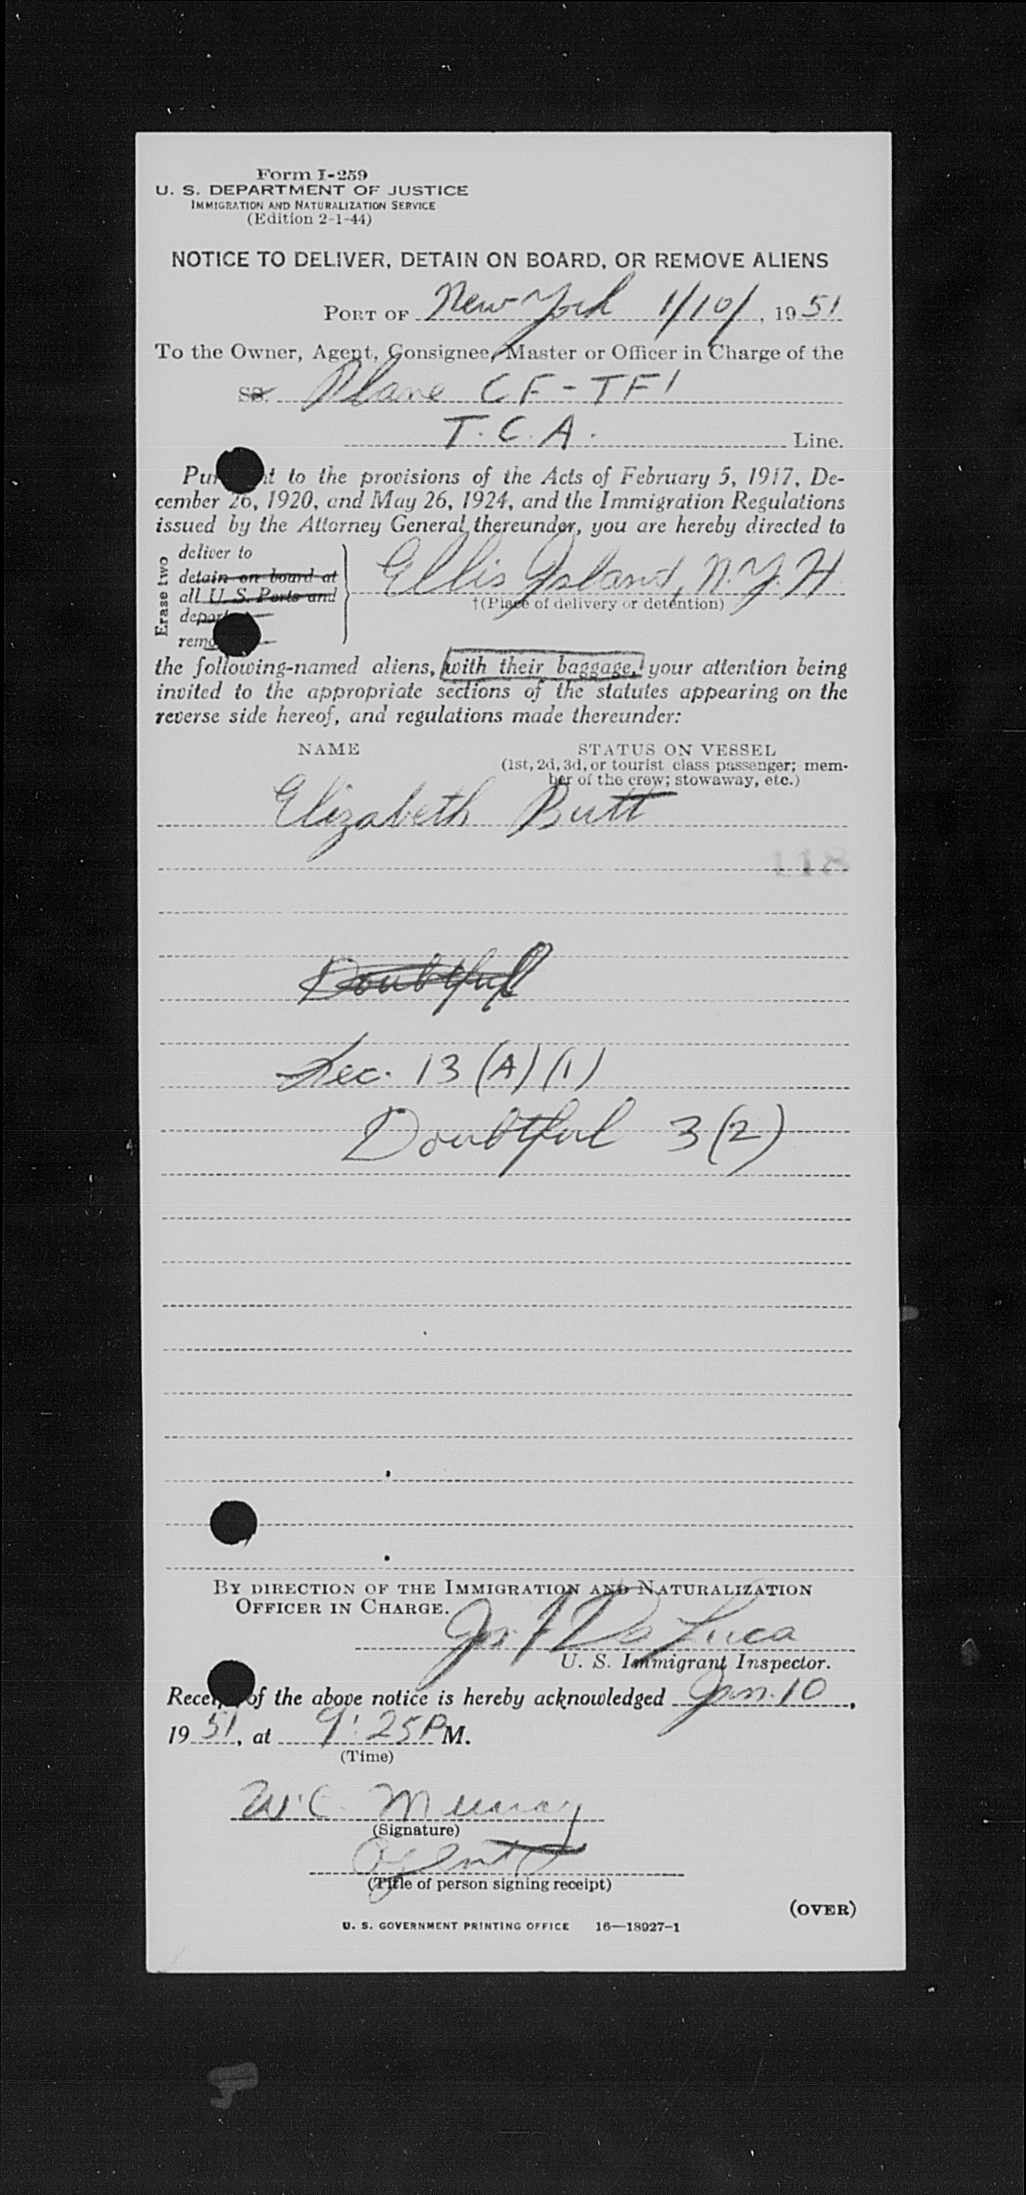 Form I-259
U. S. DEPARTMENT OF JUSTICE
IMMIGRATION AND NATURALIZATION SERVICE
(Edition 2-1-44)
NOTICE TO DELIVER, DETAIN ON BOARD, OR REMOVE ALIENS
PORT OF New York 1/10/, 1951
To the Owner, Agent, Consignee, Master or Officer in Charge of the
SS. Plane CF-TFI
T.C.A. Line.
to the provisions of the Acts of February 5, 1917, De-
cember 26, 1920, and May 26, 1924, and the Immigration Regulations
issued by the Attorney General thereunder, you are hereby directed to
Erase two
deliver to
detain on board at
all U. S. Ports and
Ellis Island, N.Y.H.
†(Place of delivery or detention)
the following-named aliens, with their baggage, your attention being
invited to the appropriate sections of the statutes appearing on the
reverse side hereof, and regulations made thereunder:
NAME STATUS ON VESSEL
(1st, 2d, 3d, or tourist class passenger; mem-
ber of the crew; stowaway, etc.)
Elizabeth Butt
118
Doubtful
Sec. 13 (A) (1)
Doubtful 3(2)
BY DIRECTION OF THE IMMIGRATION AND NATURALIZATION
OFFICER IN CHARGE.
De Luca
U. S. Immigrant Inspector.
of the above notice is hereby acknowledged Jan. 10,
1951, at 9:25 PM.
(Time)
W.C. Murray
(Signature)
Agent
(Title of person signing receipt)
(OVER)
U. S. GOVERNMENT PRINTING OFFICE 16—18927-1